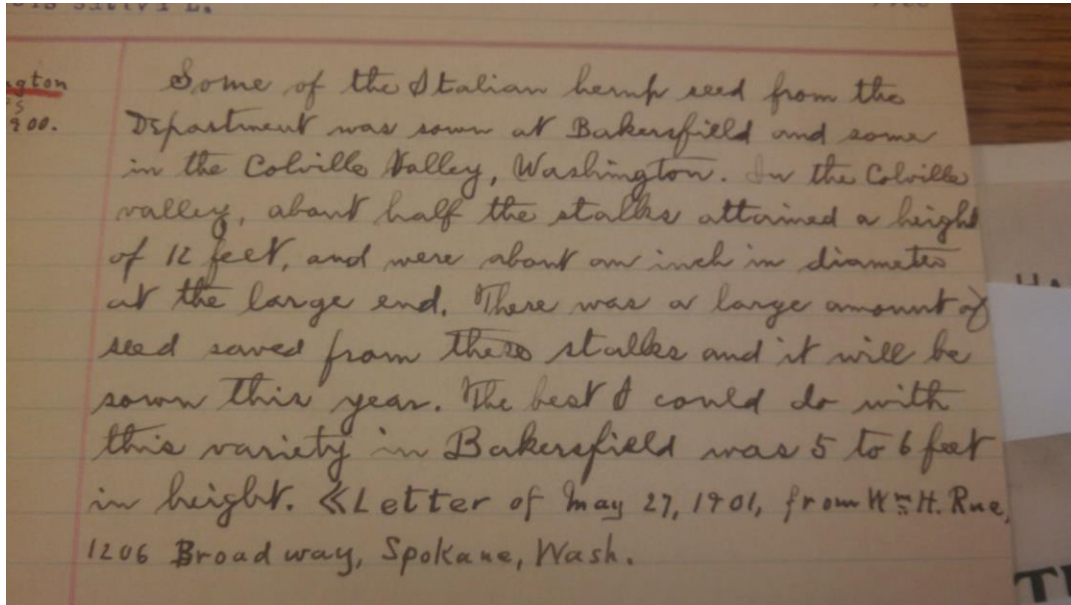 ngton
's
900.
Some of the Italian hemp seed from the
Department was sown at Bakersfield and some
in the Colville Valley, Washington. In the Colville
valley, about half the stalks attained a height
of 12 feet, and were about an inch in diameter
at the large end. There was a large amount of
seed saved from these stalks and it will be
sown this year. The best I could do with
this variety in Bakersfield was 5 to 6 feet
in height. «Letter of May 27, 1901, from Wm H. Rue,
1206 Broadway, Spokane, Wash.